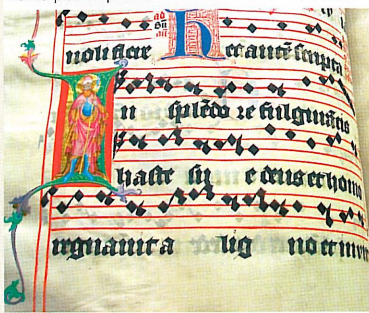 noli flere Hec autē scripta
In splēdore fulgurātis
haste sue deus et homo
regnavit a ligno et